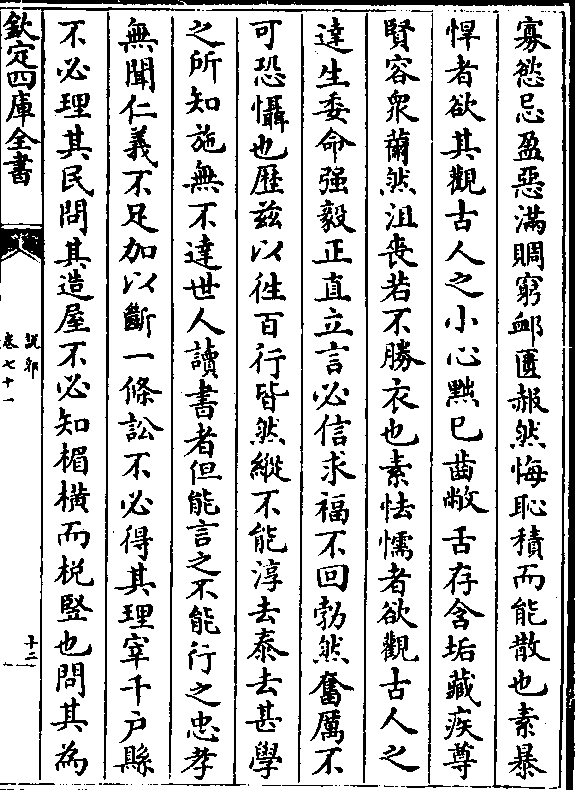 寡慾忌盈惡滿賙窮卹匱赧然悔恥積而能散也素暴
悍者欲其觀古人之小心黜己齒敝舌存含垢藏疾尊
賢容衆薾然沮喪若不勝衣也素怯懦者欲觀古人之
達生委命强毅正直立言必信求福不回勃然奮厲不
可恐懾也歴兹以徃百行皆然縱不能淳去泰去甚學
之所知施無不達世人讀書者但能言之不能行之忠孝
無聞仁義不足加以斷一條訟不必得其理宰千户縣
不必理其民問其造屋不必知楣横而梲豎也問其為
欽定四庫全書
説郛
卷七十一
十二